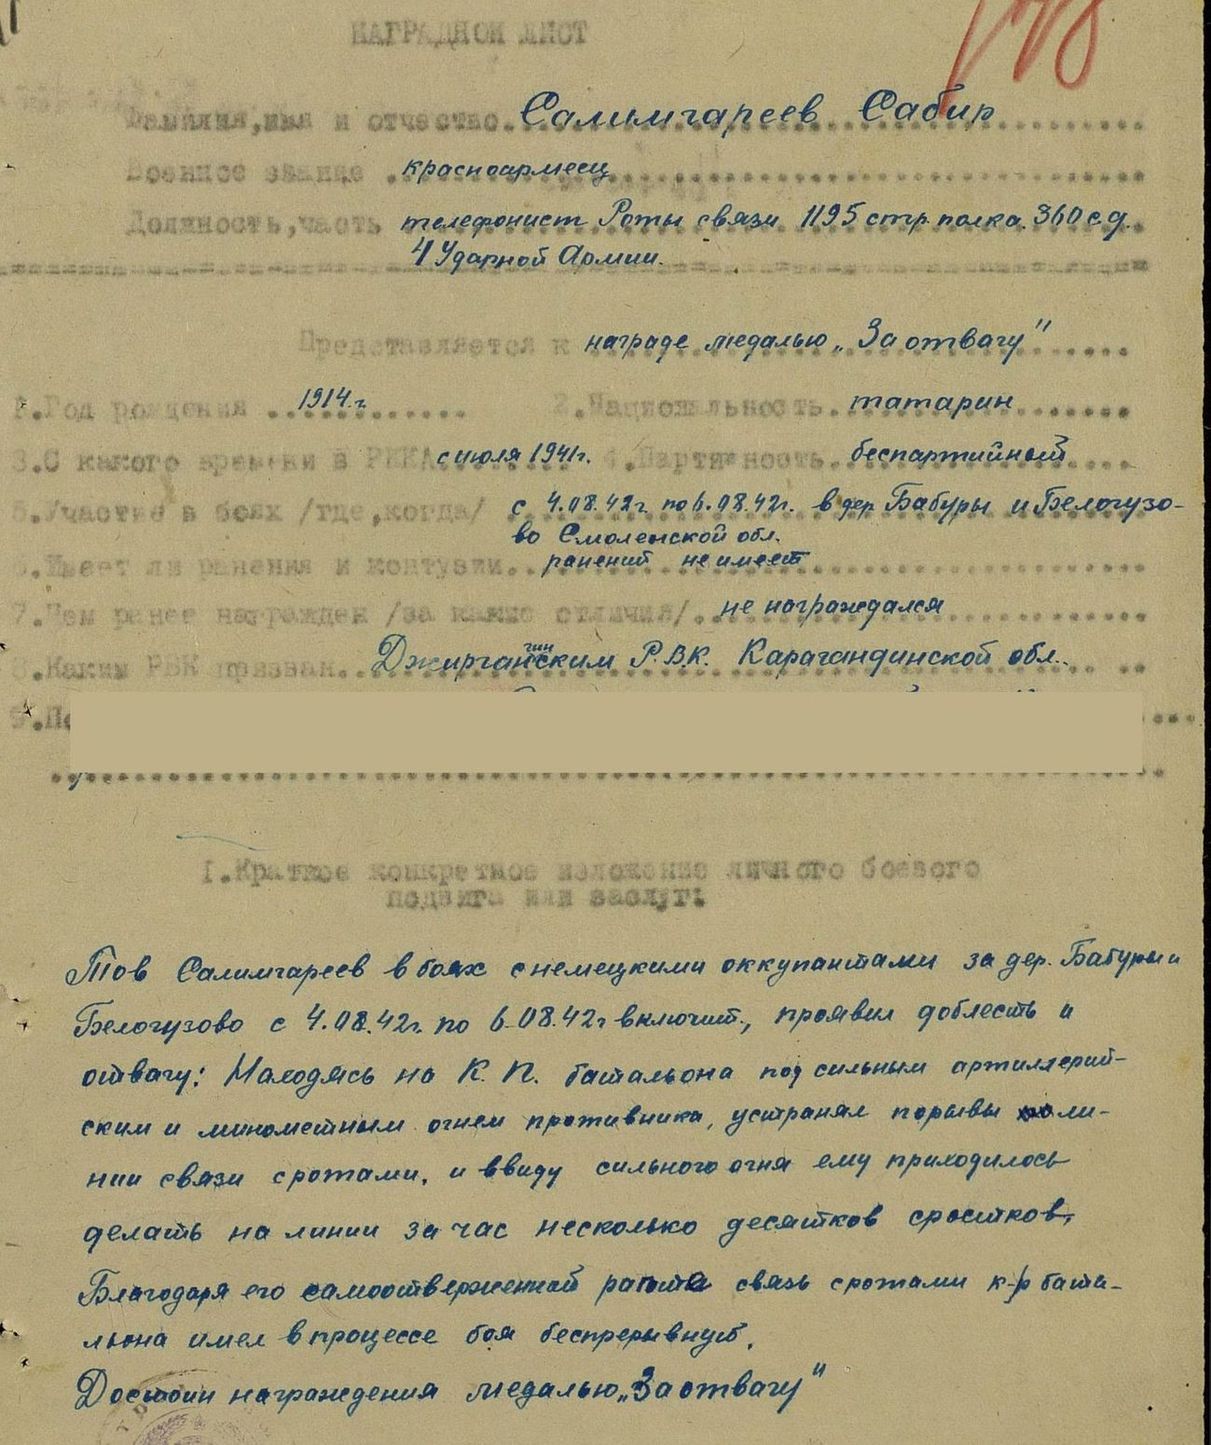 НАГРАДНОЙ ЛИСТ
Фамилия,имя и отчество Салимгареев Сабир
Военное звание красноармеец
Должность,часть телефонист Роты связи 1195 стр. полка. 360 с.д.
4 Ударной Армии.
Представляется к награде медалью „За отвагу"
1.Год рождения 1914.г. 2.Национальность татарин
3.С какого времени в РККА с июля 1941г. 4.Партийность беспартийный
5.Участие в боях /где,когда/ с 4.08.42г. по 6.08.42г. в дер Бабуры и Белогузо-
во Смоленской обл.
6.Имеет ли ранения и контузии ранений не имеет
7.Чем ранее награжден /за какие отличия/ не награждался
8.Каким РВК призван Р.В.К. Карагандинской обл.
9.П
1.Краткое конкретное изложение личного боевого
подвига или заслуг:
Тов Салимгареев в боях с немецкими оккупантами за дер. Бабуры и
Белогузово с 4.08.42г. по 6.08.42г включит., проявил доблесть и
отвагу: Находясь на К. П. батальона под сильным артиллерий-
ским и минометным огнем противника, устранял порывы ли-
нии связи с ротами, и ввиду сильного огня ему приходилось
делать на линии за час несколько десятков сростков,
Благодаря его самоотверженной работе связь с ротами к-р бата-
льона имел в процессе боя беспрерывную.
Достоин награждения медалью „За отвагу"